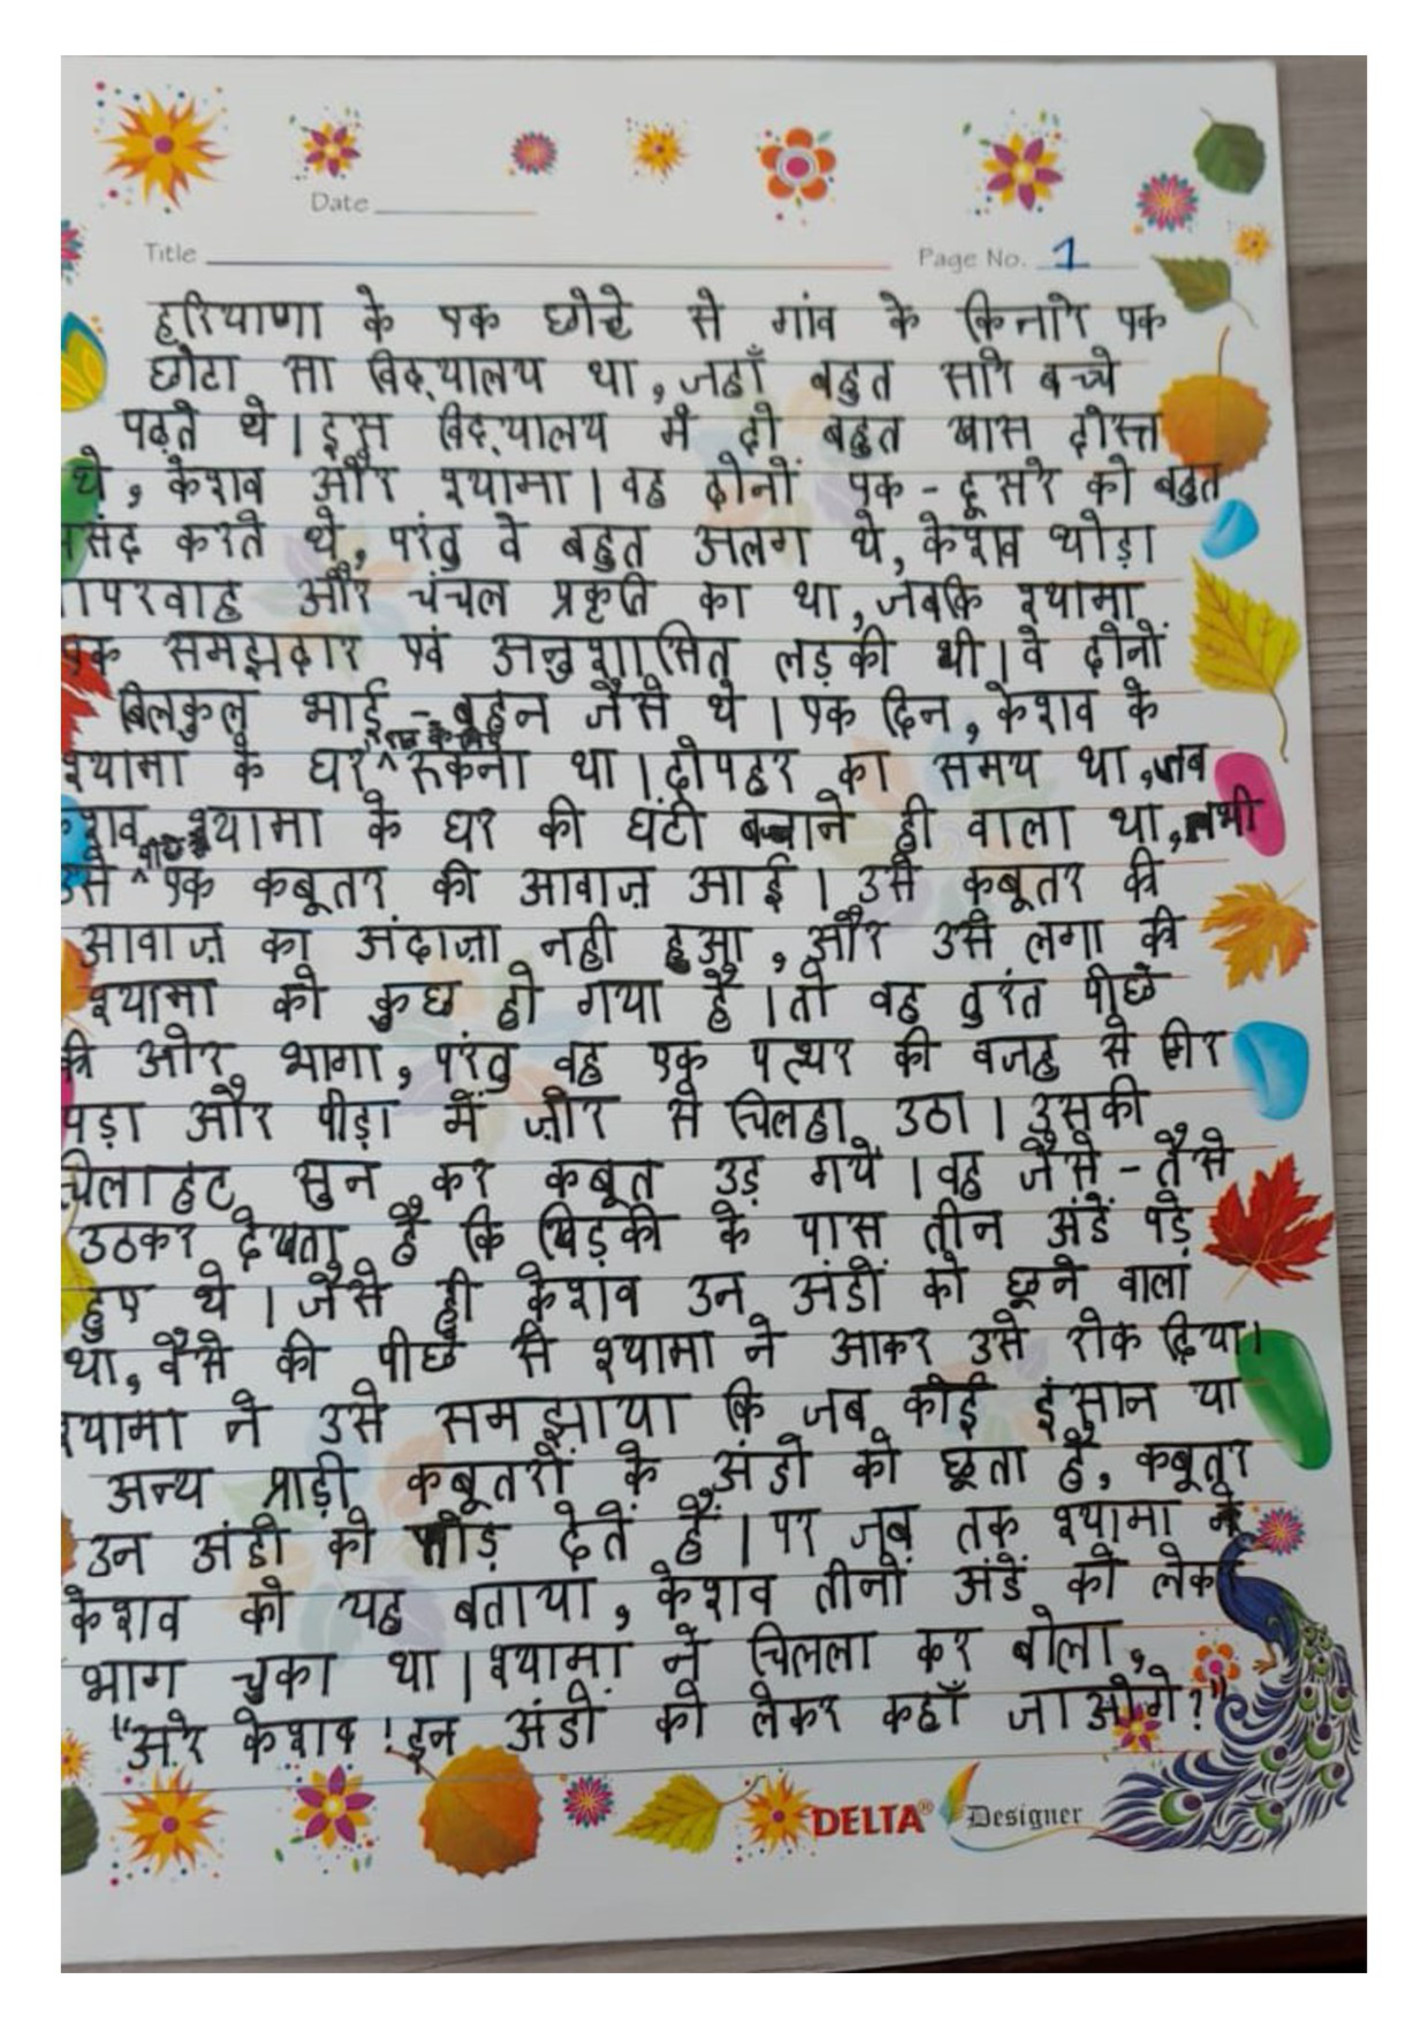 Date
Title Page No. 1
हरियाणा के एक छोटे से गांव के किनारे एक
छोटा सा विद्यालय था, जहाँ बहुत सारे बच्चे
पढ़ते थे। इस विद्यालय में दो बहुत खास दोस्त
थे, केशव और श्यामा। वह दोनों एक - दूसरे को बहुत
करते थे, परंतु वे बहुत अलग थे, केशव थोड़ा
और चंचल प्रकृति का था, जबकि श्यामा
एक समझदार एवं अनुशासित लड़की थी। वे दोनों
बिलकुल भाई - बहन जैसे थे। एक दिन, केशव के
श्यामा के घर रुकना था। दोपहर का समय था, जब
श्यामा के घर की घंटी बजाने ही वाला था, तभी
उसे एक कबूतर की आवाज़ आई। उसे कबूतर की
आवाज़ का अंदाज़ा नही हुआ, और उसे लगा की
श्यामा को कुछ हो गया है। तो वह तुरंत पीछे
की ओर भागा, परंतु वह एक पत्थर की वजह से गिर
पड़ा और पीड़ा में ज़ोर से चिलहा उठा। उसकी
चिलाहट सुन कर कबूत उड़ गये। वह जैसे - तैसे
उठकर देखता है कि खिड़की के पास तीन अंडें पड़े
हुए थे। जैसे ही केशव उन अंडों को छूने वाला
था, वैसे की पीछे से श्यामा ने आकर उसे रोक दिया।
श्यामा ने उसे समझाया कि जब कोई इंसान या
अन्य प्राड़ी कबूतरों के अंडो को छूता है, कबूतर
उन अंडो को फोड़ देतें हैं। पर जब तक श्यामा ने
केशव को यह बताया, केशव तीनों अंडें को लेकर
भाग चुका था। श्यामा ने चिलला कर बोला,
"अरे केशव! इन अंडों को लेकर कहाँ जाओगे?"
DELTA® Designer